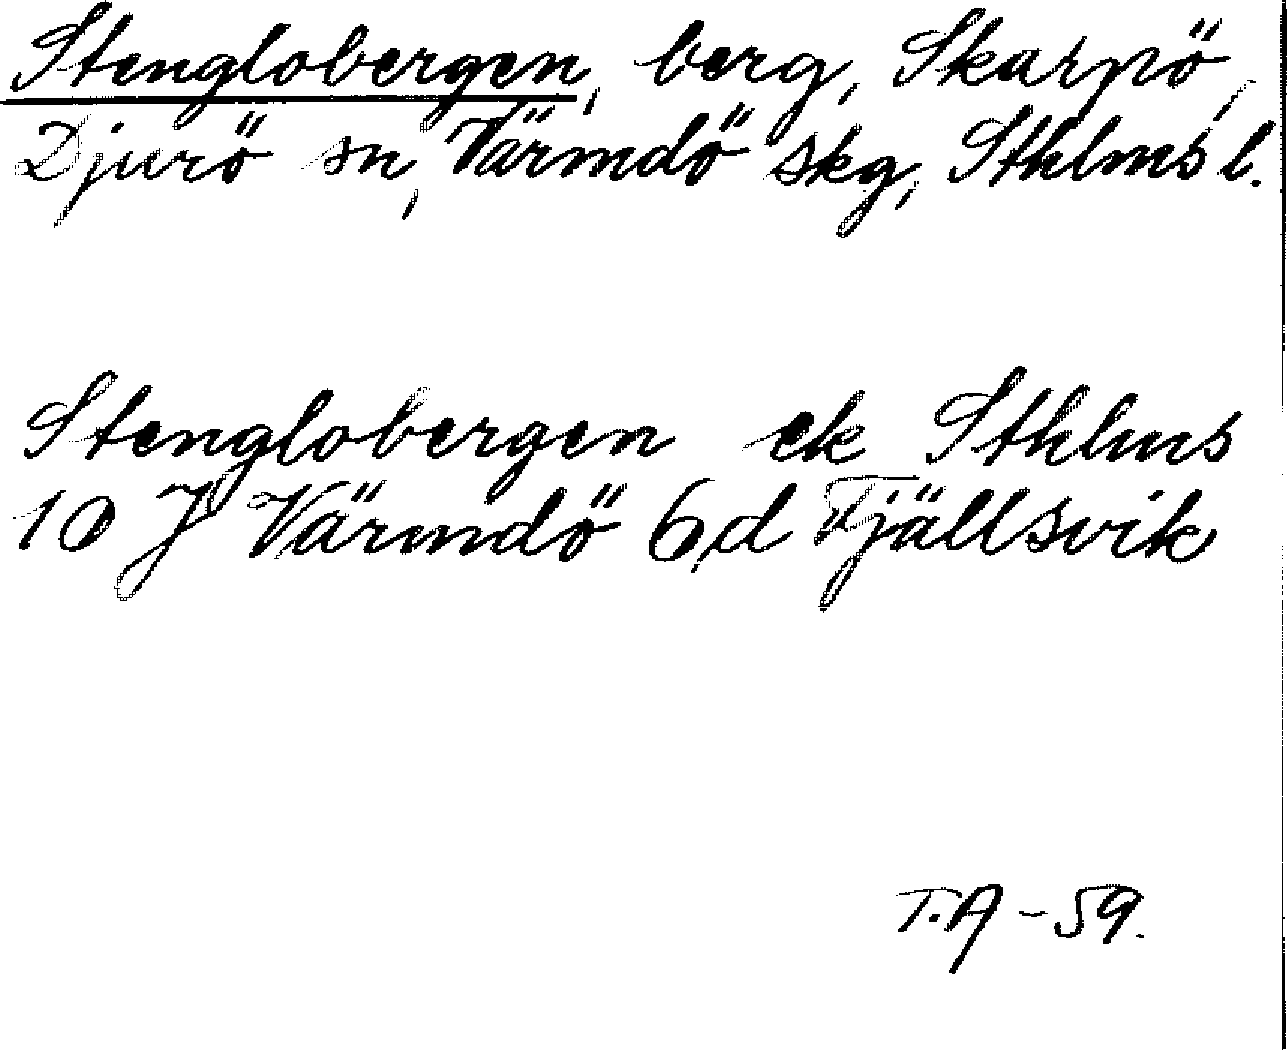 Stenglobergen, berg, Skarpö,
Djurö sn, Värmdö skg, Sthlms l.
Stenglobergen ek Sthlms
10 J Värmdö 6d Fjällsvik
T.A - 59.